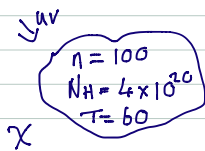 uv
n = 100
NH = 4 x 10^20
T = 60
χ